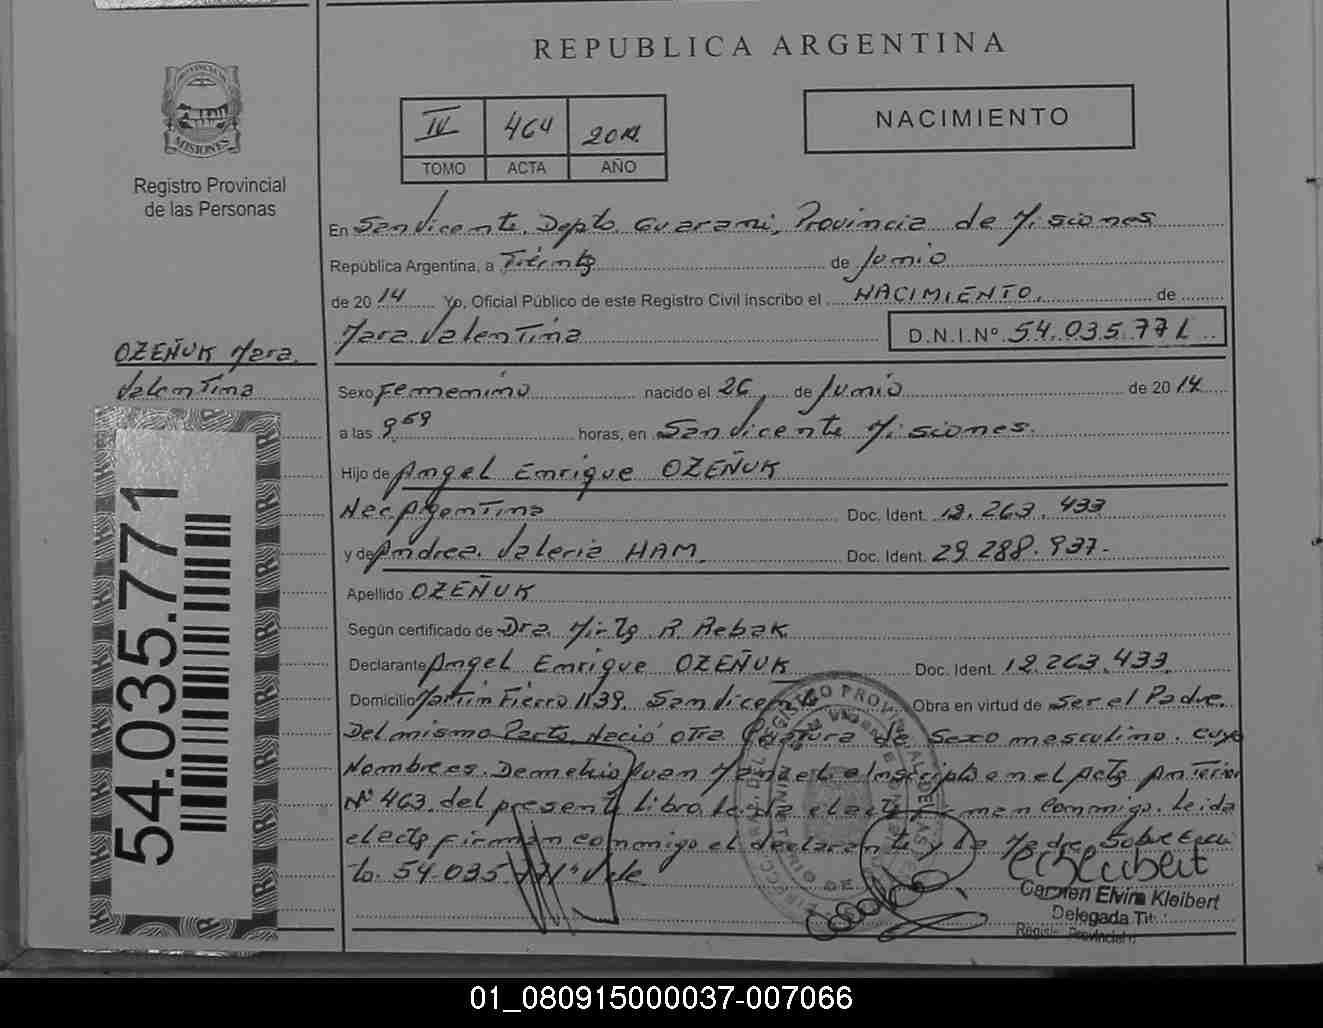 REPUBLICA ARGENTINA
PROVINCIA DE
MISIONES
Registro Provincial
de las Personas
IV 464 2014
TOMO ACTA AÑO
NACIMIENTO
En San Vicente, Depto. Guarani, Provincia de Misiones
República Argentina, a Treinta de Junio
de 2014 Yo, Oficial Público de este Registro Civil inscribo el NACIMIENTO. de
Mara Valentina D.N.I.Nº 54.035.771
OZEÑUK Mara
Valentina
Sexo Femenino nacido el 26 de Junio de 2014
a las 9,59 horas, en San Vicente Misiones.
Hijo de Angel Enrique OZEÑUK
Nac. Argentina Doc. Ident. 12.263.433
y de Andrea Valeria HAM Doc. Ident. 29.288.937.
Apellido OZEÑUK
Según certificado de Dra. Mirta R. Rebak
Declarante Angel Enrique OZEÑUK Doc. Ident. 12.263.433
Domicilio Martin Fierro 1139. San Vicente Obra en virtud de Ser el Padre.
Del mismo Parto Nació otra Criatura de Sexo masculino. cuyo
Nombre es. Demetrio Juan e Inscripto en el Acta Anterior
Nº 463. del presente Libro. Leida el acta firman conmigo. Leida
el acta firman conmigo el declarante y la Madre. Sobre Escri
to. 54.035.771. Vale
54.035.771
Carmen Elvira Kleibert
Delegada Tit.
01_080915000037-007066